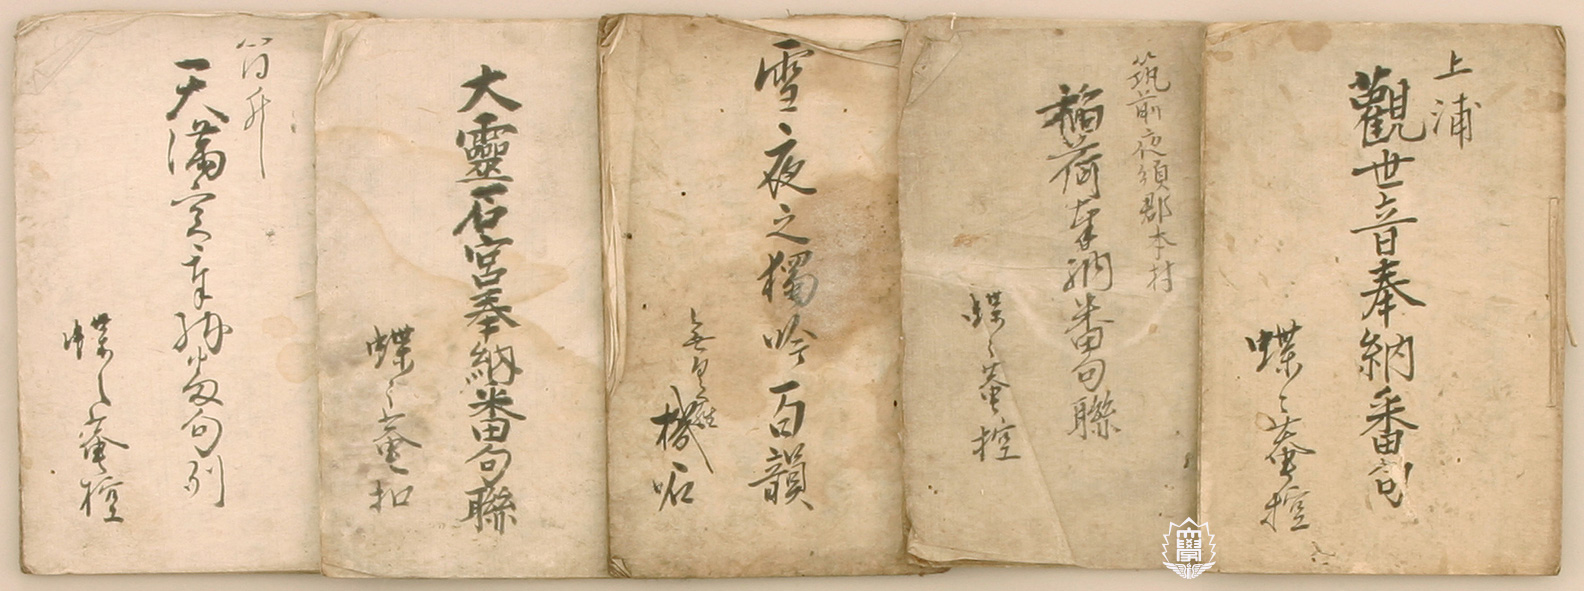 上浦
觀世音奉納番句
蝶〻菴控
筑前夜須郡本村
稲荷奉納番句聯
蝶〻菴控
雪夜之獨吟百韻
橘石
大靈石宮奉納番句聯
蝶〻菴扣
天満宮奉納番句列
蝶〻菴控
大學